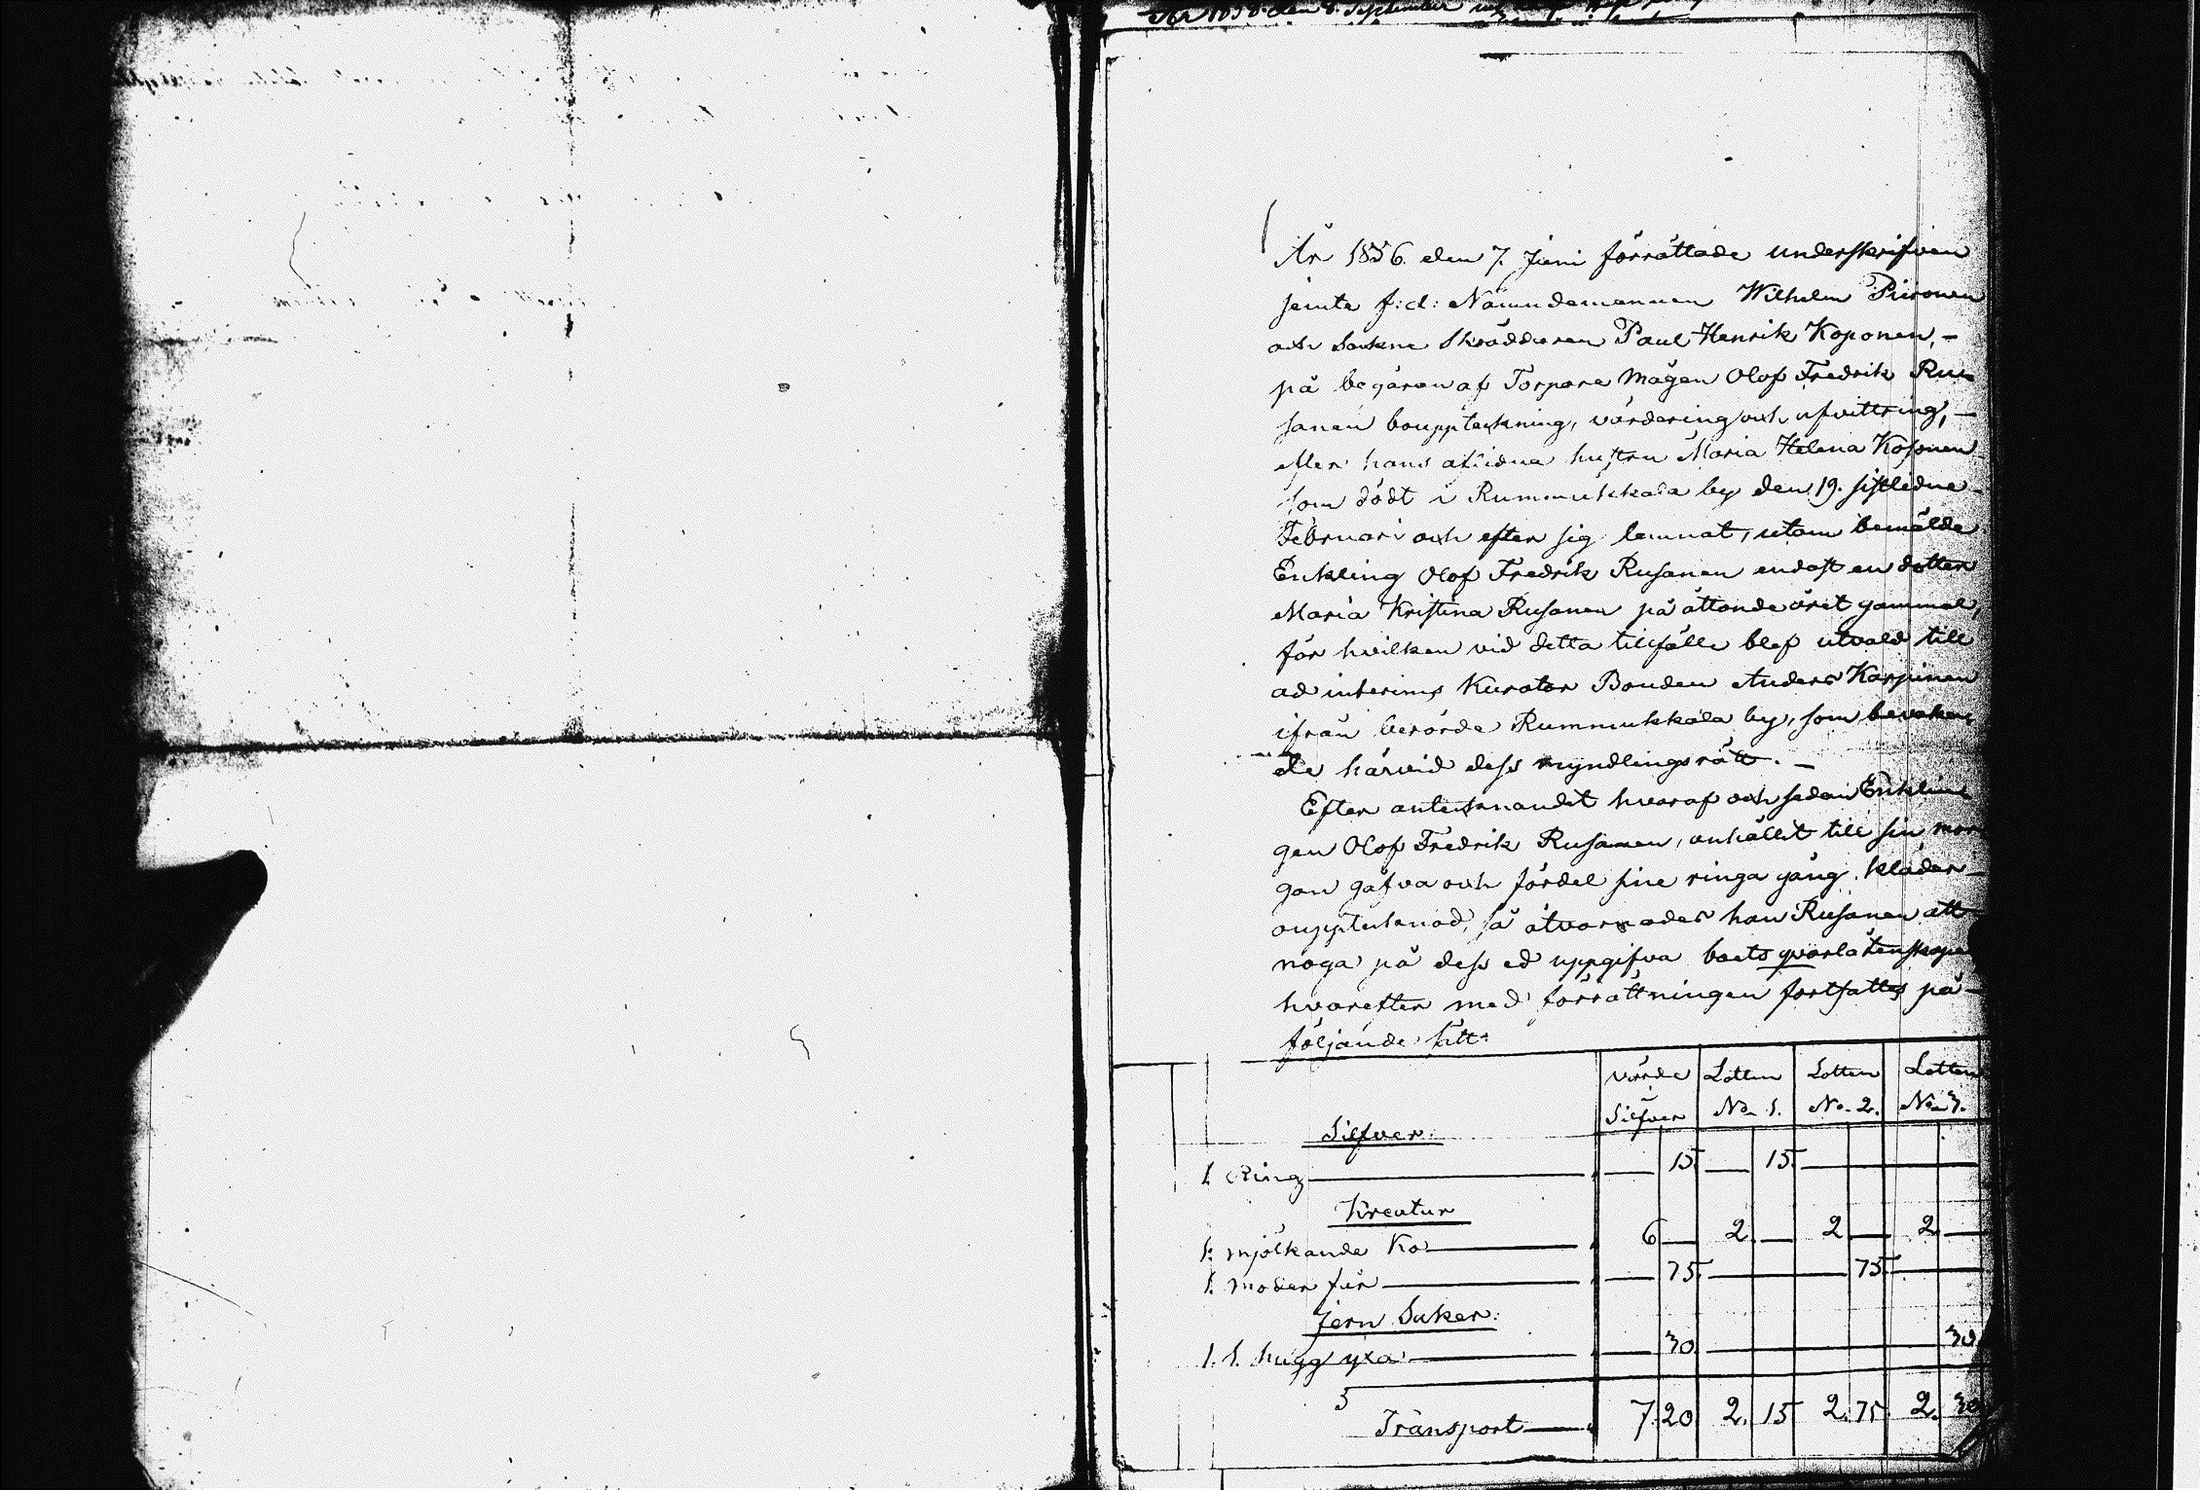 År 1856. den 7. Juni förrättade underskrifven
jemte f:d: Nämndemannen Wilhelm Piironen
och Sockne Skräddaren Paul Henrik Koponen, -
på begäran af Torpare Mågen Olof Fredrik Ru-
sanen bouppteckning, värdering och afvittring, -
efter hans aflidna hustru Maria Helena Koponen
som dödt i Rummukkala by den 19. sistledne
Februari och efter sig lemnat, utom bemälde
Enkling Olof Fredrik Rusanen endast en dotter
Maria Kristina Rusanen på åttonde året gammal,
för hvilken vid detta tillfälle blef utvald till
ad interims Kurator Bonden Anders Karpinen
ifrån berörde Rummukkala by, som bevaka-
de härvid dess myndlingsrätt. -
Efter antecknandet hvaraf och sedan Enklin-
gen Olof Fredrik Rusanen, anhållit till sin mor-
gon gåfva och fördel sine ringa gång kläder
oupptecknad, så åtvarnades han Rusanen att
noga på dess ed uppgifva boets qvarlåtenskap
hvarefter med förrättningen fortsattes på -
följande sätt.
värde Lotten Lotten Lotten
Silfver No 1. No. 2. No 3.
Silfver.
1. Ring 15. 15.
Kreatur
1: mjölkande Ko 6 2. 2 2
1. moder får 75. 75.
Jern Saker.
1. 1. hugg yxa 30. 30
5
Transport 7. 20 2. 15 2. 75. 2. 30